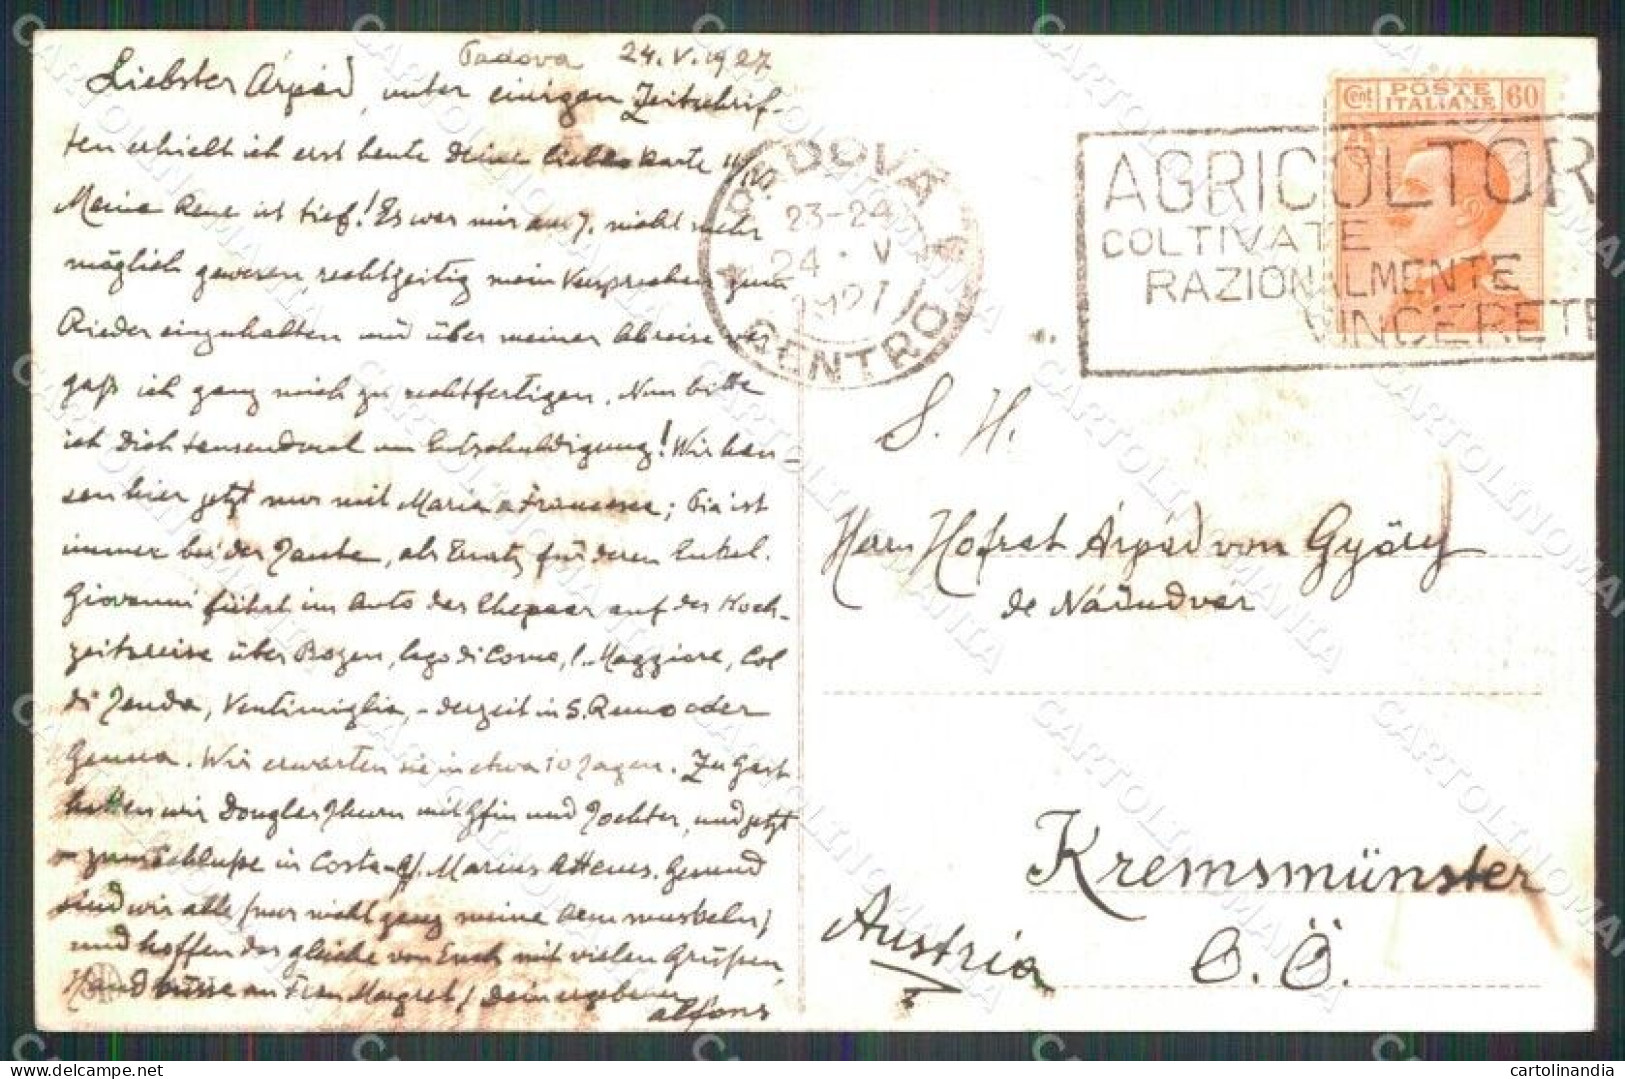 Padova 24.V.1927
Liebster Árpád, unter einigen Zeitschrif-
ten erhielt ich erst heute Deine liebe Karte
Meine Reue ist tief! Es war mir am 7. nicht mehr
möglich gewesen, rechtzeitig mein Versprechen zum
Rieder einzuhalten und über meiner Abreise ver
gaß ich ganz mich zu rechtfertigen. Nun bitte
ich Dich tausendmal um Entschuldigung! Wir hau-
sen hier jetzt nur mit Maria Francesca; Pia ist
immer bei der Tante, als Ersatz für deren Enkel.
Giovanni führt im Auto das Ehepaar auf der Hoch-
zeitsreise über Bozen, Lago di Como, L. Maggiore, Col
di Tenda, Ventimiglia, - derzeit in S. Remo oder
Genua. Wir erwarten sie in etwa 10 Tagen. Zu Gast
hatten wir Douglas Thurn mit Gfin und Tochter, und jetzt
- zum Schluße in Costa - Marius Attems. Gesund
sind wir alle (nur nicht ganz meine
und hoffen das gleiche von Euch mit vielen Grüßen,
Handküsse an Frau Margret / Dein ergebener
Alfons
PADOVA
23-24
24 · V
1927
CENTRO
Cent POSTE ITALIANE 60
AGRICOLTOR
COLTIVATE
RAZIONALMENTE
VINCERETE
S. H.
Herrn Hofrat Árpád von Györy
de Nádudvar
Kremsmünster
Austria O. Ö.
CARTOLINOMANIA
cartolinandia